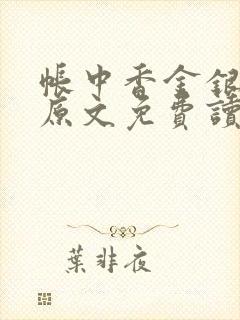 帳中香金銀
原文免費讀
葉非夜